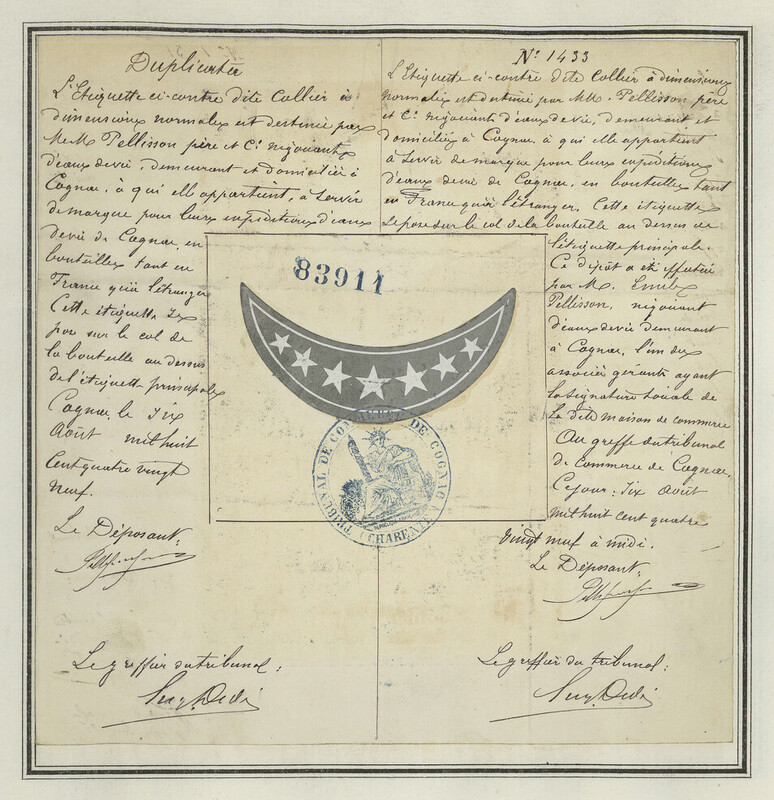 Duplicata
L'Etiquette ci-contre dite Collier à
dimensions normales est destinée par
MM. Pellisson père et Cie négociants
d'eaux de vie, demeurant et domiciliés à
Cognac, à qui elle appartient, à servir
de marque pour leurs expéditions d'eaux
de vie de Cognac, en
bouteilles tant en
France qu'à l'étranger
Cette étiquette se
pose sur le col de
la bouteille au dessus
de l'étiquette principale
Cognac le Six
Août mil huit
Cent quatre vingt
neuf.
Le Déposant,
Le greffier du tribunal:
No 1433
L'Etiquette ci-contre dite Collier à dimensions
normales est destinée par MM. Pellisson père
et Cie négociants d'eaux de vie, demeurant et
domiciliés à Cognac, à qui elle appartient
à servir de marque pour leurs expéditions
d'eaux de vie de Cognac, en bouteilles tant
en France qu'à l'étranger. Cette étiquette
se pose sur le col de la bouteille au dessus de
l'étiquette principale.
Ce dépôt a été effectué
par M. Emile
Pellisson, négociant
d'eaux de vie demeurant
à Cognac, l'un des
associés gérants ayant
la signature sociale de
la dite maison de commerce
Au greffe du tribunal
de Commerce de Cognac,
Ce jour: Six Août
mil huit cent quatre
vingt neuf à midi.
Le Déposant,
Le greffier du tribunal:
83911
TRIBUNAL DE COMMERCE DE COGNAC
(CHARENTE)